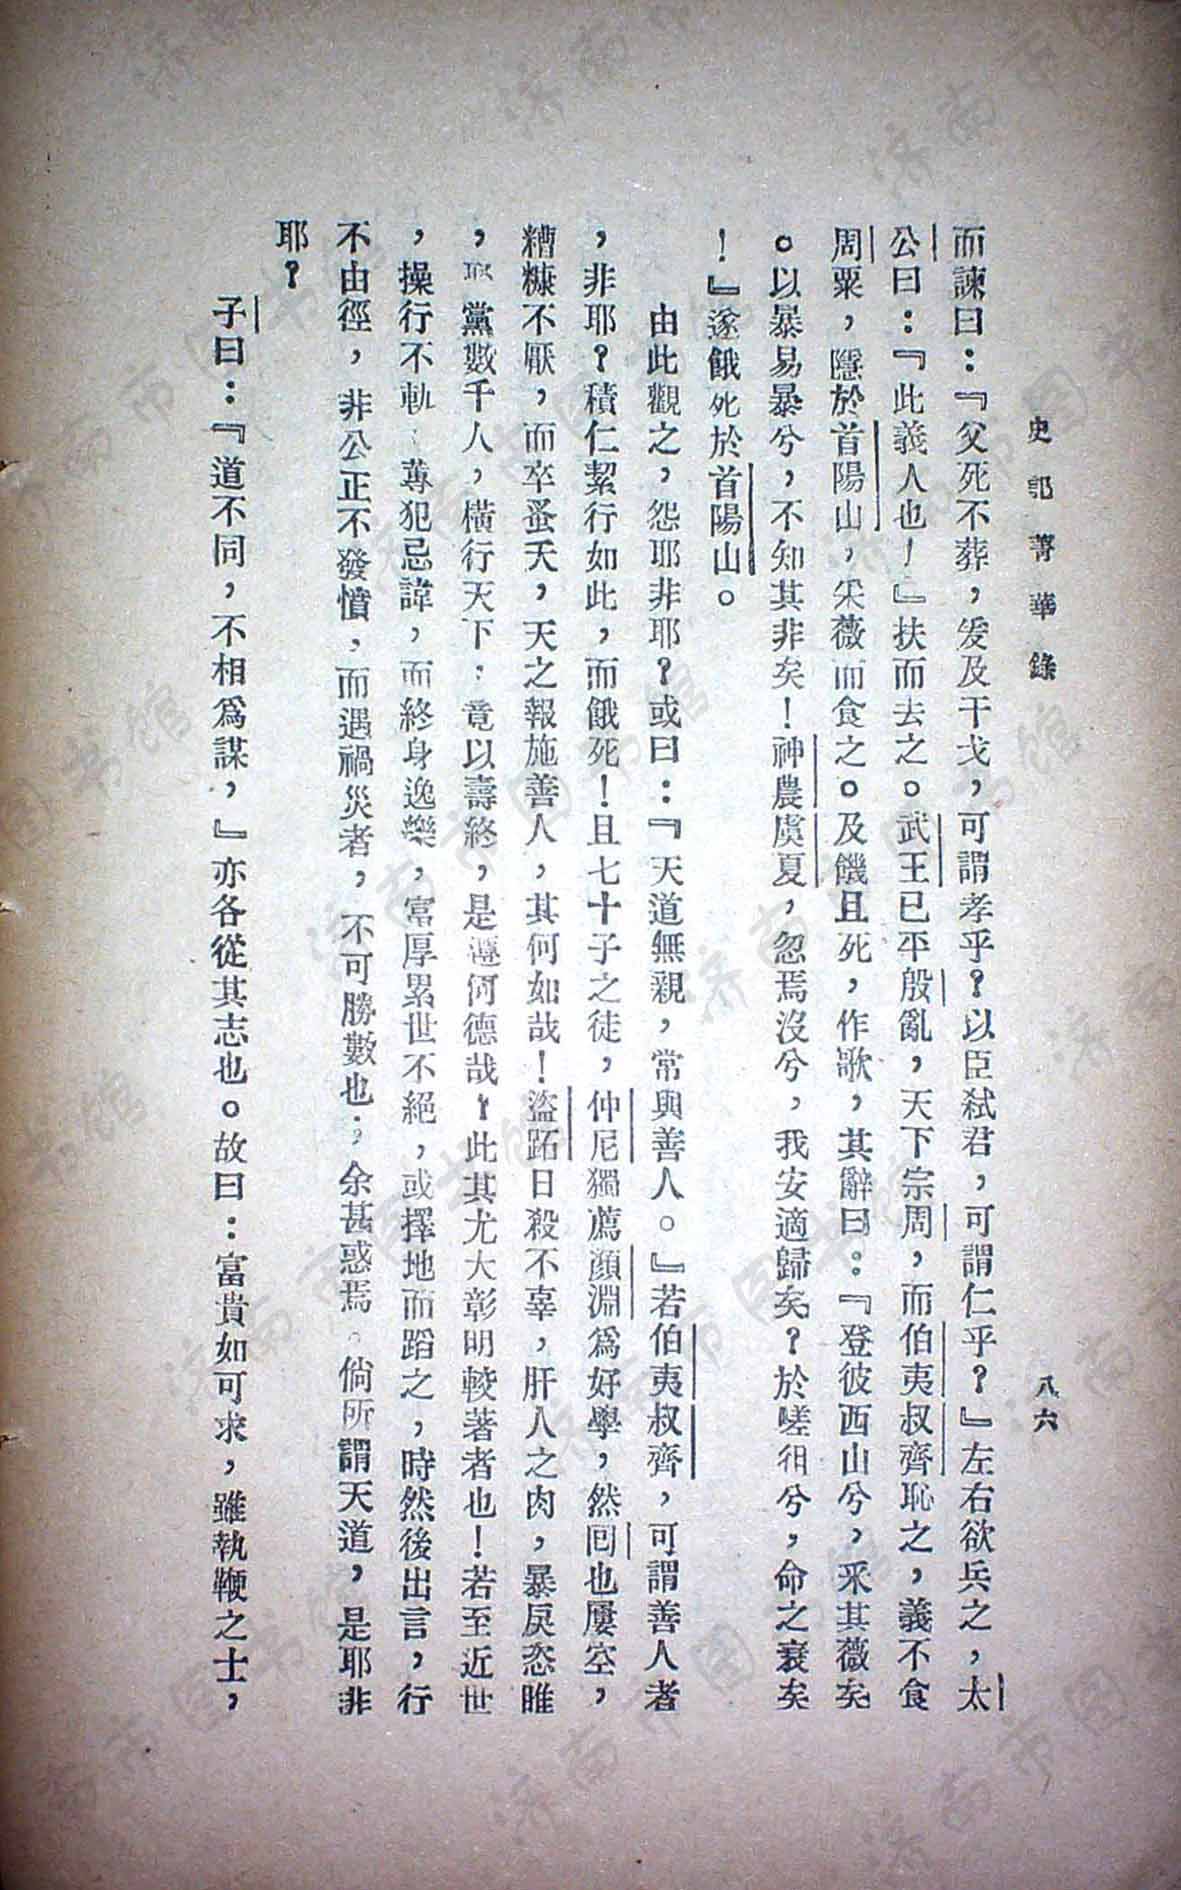 史記菁華錄
八六
而諫曰：『父死不葬，爰及干戈，可謂孝乎？以臣弒君，可謂仁乎？』左右欲兵之，太
公曰：『此義人也！』扶而去之。武王已平殷亂，天下宗周，而伯夷叔齊恥之，義不食
周粟，隱於首陽山，采薇而食之。及饑且死，作歌，其辭曰：『登彼西山兮，采其薇矣
。以暴易暴兮，不知其非矣！神農虞夏，忽焉沒兮，我安適歸矣？於嗟徂兮，命之衰矣
！』遂餓死於首陽山。
由此觀之，怨耶非耶？或曰：『天道無親，常與善人。』若伯夷叔齊，可謂善人者
，非耶？積仁絜行如此，而餓死！且七十子之徒，仲尼獨薦顏淵爲好學，然回也屢空，
糟糠不厭，而卒蚤夭，天之報施善人，其何如哉！盜跖日殺不辜，肝人之肉，暴戾恣睢
，聚黨數千人，橫行天下，竟以壽終，是遵何德哉？此其尤大彰明較著者也！若至近世
，操行不軌，專犯忌諱，而終身逸樂，富厚累世不絕，或擇地而蹈之，時然後出言，行
不由徑，非公正不發憤，而遇禍災者，不可勝數也；余甚惑焉。倘所謂天道，是耶非
耶？
子曰：『道不同，不相爲謀，』亦各從其志也。故曰：富貴如可求，雖執鞭之士，
济南市图书馆